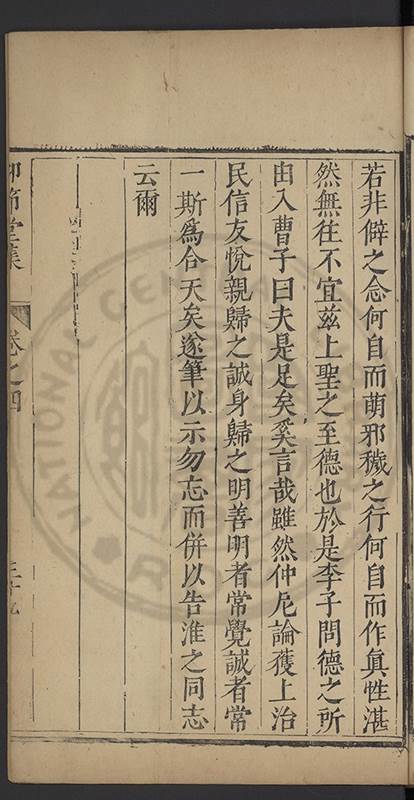 若非僻之念何自而萌邪穢之行何自而作眞性湛
然無往不宜茲上聖之至德也於是李子問德之所
由入曹子曰夫是足矣奚言哉雖然仲尼論獲上治
民信友悅親歸之誠身歸之明善明者常覺誠者常
一斯爲合天矣遂筆以示勿忘而併以告淮之同志
云爾
節堂集
卷之四
三十九